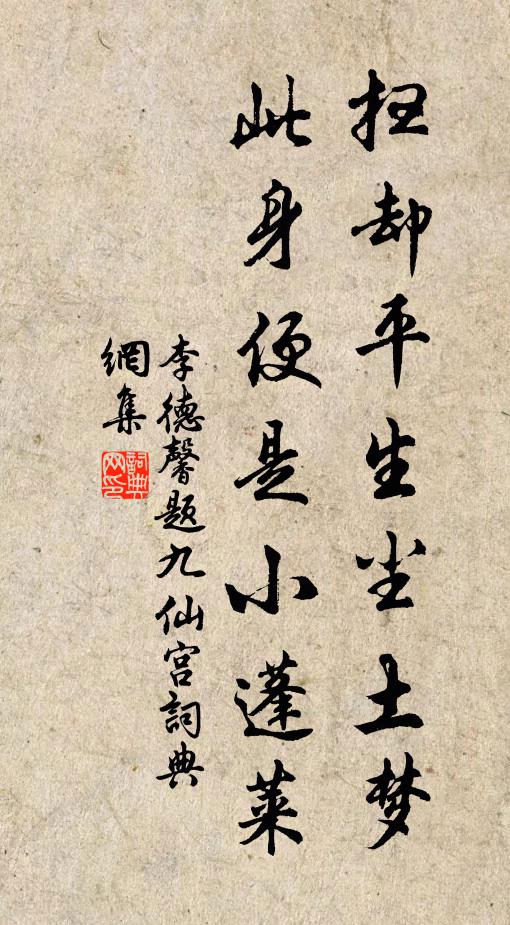 扫却平生尘土梦
此身便是小蓬莱
李德馨题九仙宫詞典
網集
詞典
网印